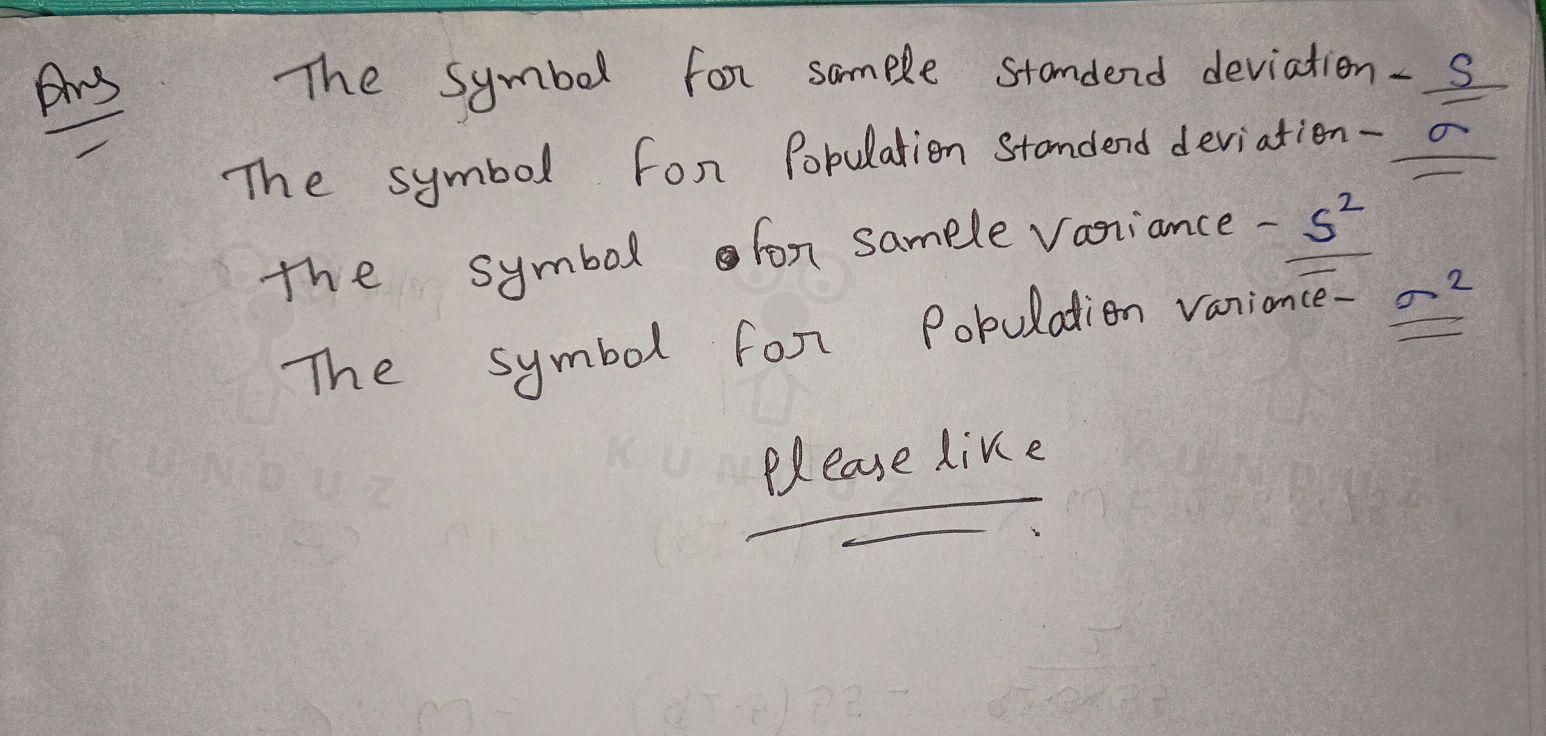 Ans The symbol for sample standerd deviation - s
The symbol for Population standerd deviation - σ
the symbol for sample variance - s²
The symbol for Population variance - σ²
KUNDUZ KUNDUZ KUNDUZ
please like